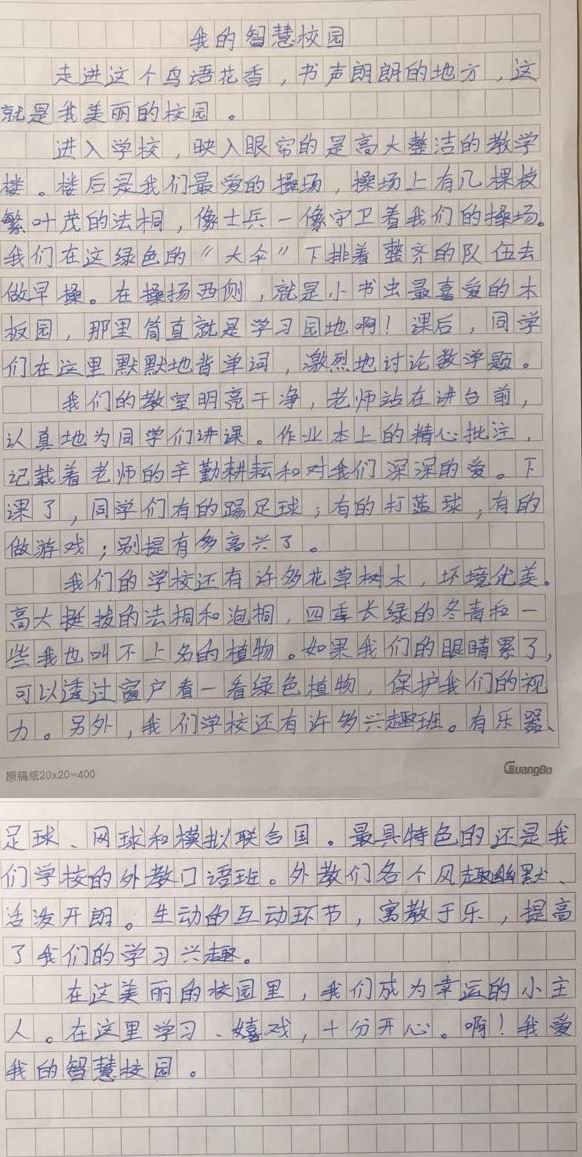 我的智慧校园
走进这个鸟语花香，书声朗朗的地方，这
就是我美丽的校园。
进入学校，映入眼帘的是高大整洁的教学
楼。楼后是我们最爱的操场，操场上有几棵枝
繁叶茂的法桐，像士兵一像守卫着我们的操场。
我们在这绿色的“大伞”下排着整齐的队伍去
做早操。在操扬西侧，就是小书虫最喜爱的木
板园，那里简直就是学习园地啊！课后，同学
们在这里默默地背单词，激烈地讨论数学题。
我们的教室明亮干净，老师站在讲台前，
认真地为同学们讲课。作业本上的精心批注，
记载着老师的辛勤耕耘和对我们深深的爱。下
课了，同学们有的踢足球；有的打蓝球；有的
做游戏；别提有多高兴了。
我们的学校还有许多花草树木，环境优美。
高大挺拔的法桐和泡桐，四季长绿的冬青和一
些我也叫不上名的植物。如果我们的眼睛累了，
可以透过窗户看一看绿色植物，保护我们的视
力。另外，我们学校还有许多兴趣班。有乐器、
原稿纸20×20=400
GuangBo
足球、网球和模拟联合国。最具特色的还是我
们学校的外教口语班。外教们各个风趣幽默、
活泼开朗。生动的互动环节，寓教于乐，提高
了我们的学习兴趣。
在这美丽的校园里，我们成为幸运的小主
人。在这里学习、嬉戏，十分开心。啊！我爱
我的智慧校园。